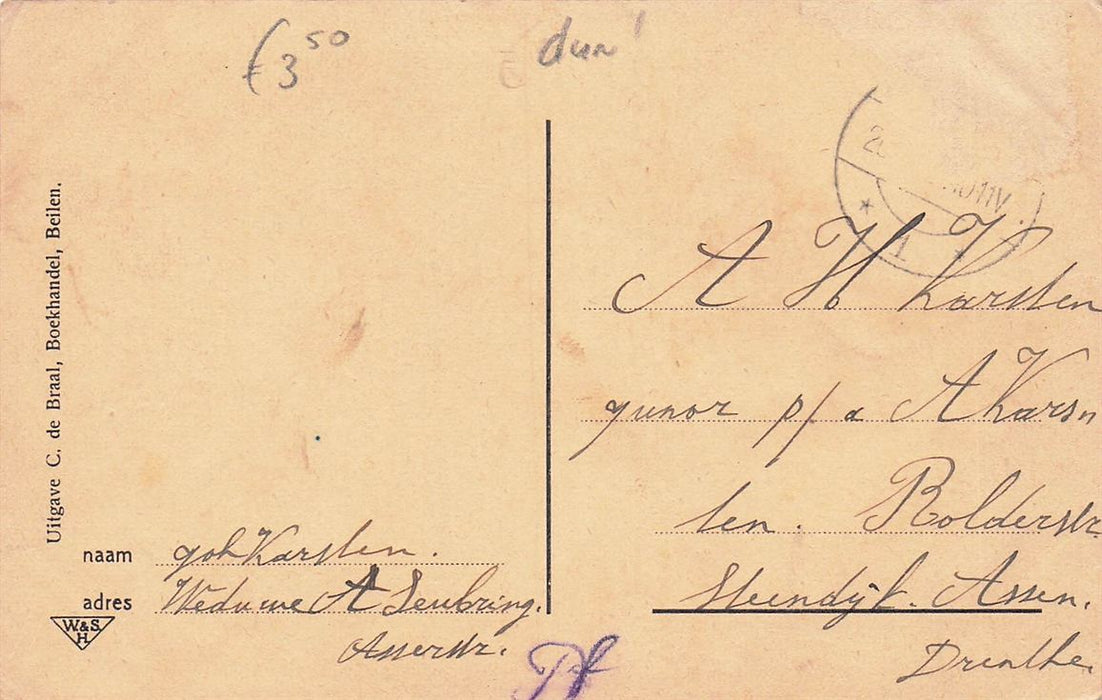 € 3 50
dun!
Uitgave C. de Braal, Boekhandel, Beilen.
naam goh Karsten.
adres Weduwe A Seubring.
Asserstr.
W.&S.
H
1
A H Karsten
gunor p/a A Kars=
ten. Rolderstr.
Steendijk. Assen.
Drenthe.